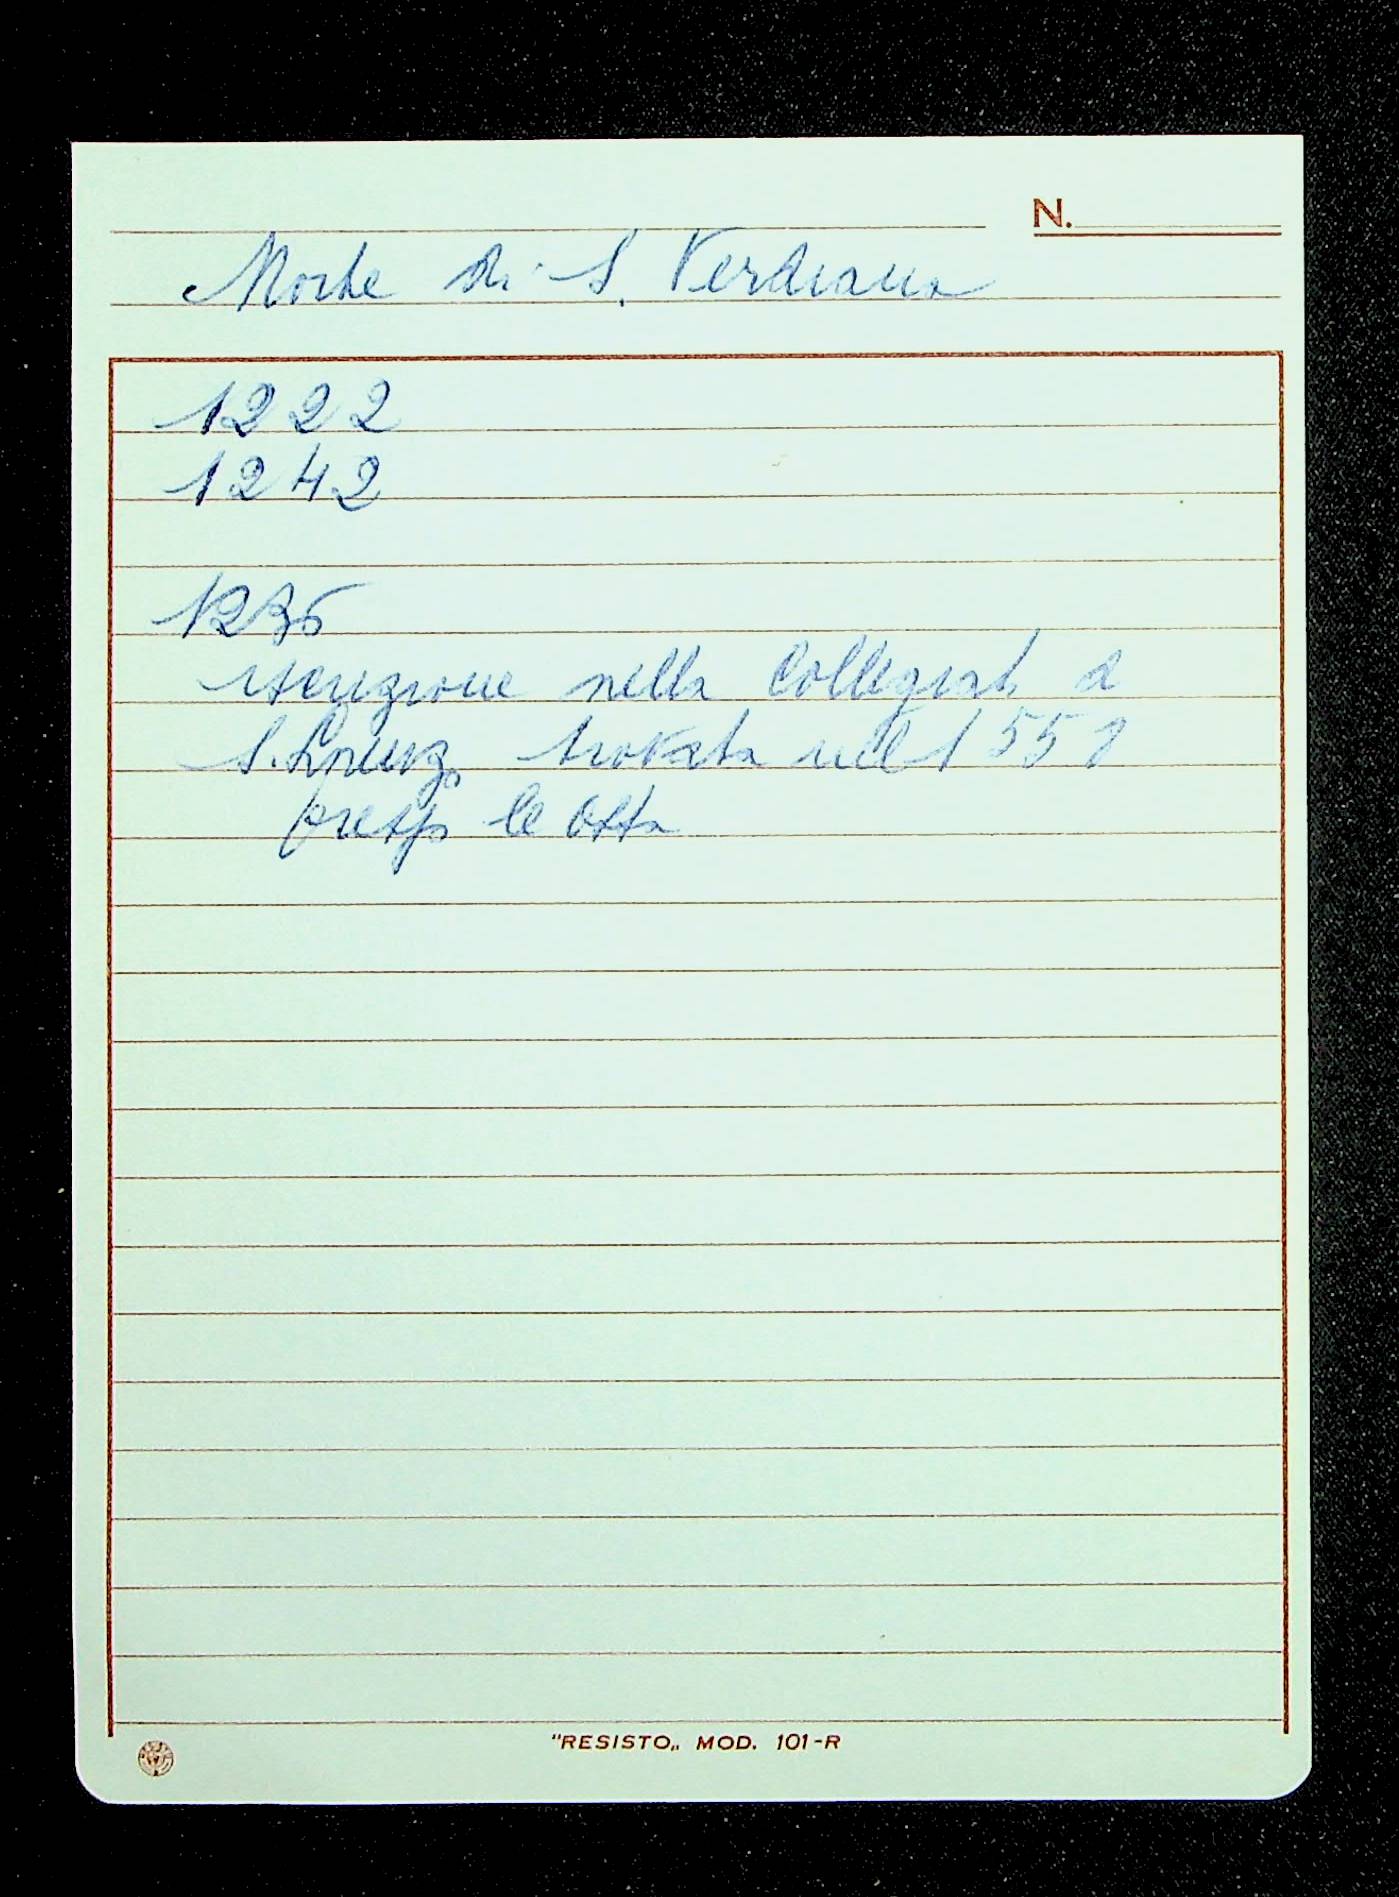 N.
Morte di S. Verdiana
1222
1242
1236
iscrizione nella Collegiat di
S. Lorenzo trovata nel 1558
presso le ossa
"RESISTO„ MOD. 101-R